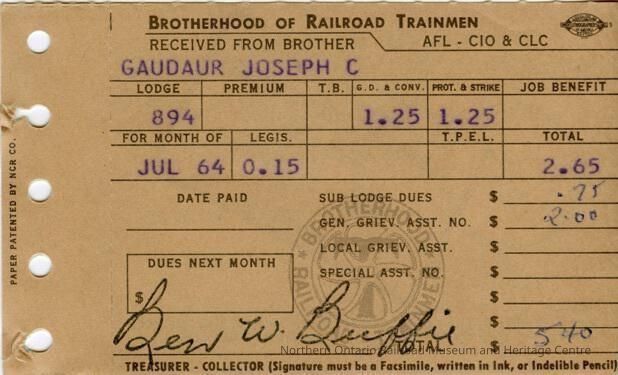 BROTHERHOOD OF RAILROAD TRAINMEN
RECEIVED FROM BROTHER AFL - CIO & CLC
GAUDAUR JOSEPH C
LODGE PREMIUM T.B. G.D. & CONV. PROT. & STRIKE JOB BENEFIT
894 1.25 1.25
FOR MONTH OF LEGIS. T.P.E.L. TOTAL
JUL 64 0.15 2.65
DATE PAID SUB LODGE DUES $ .75
GEN. GRIEV. ASST. NO. $ 2.00
LOCAL GRIEV. ASST. $
DUES NEXT MONTH SPECIAL ASST. NO. $
$ $
$
Ben W. Buffie TOTAL $ 5 40
Northern Ontario Railroad Museum and Heritage Centre
TREASURER - COLLECTOR (Signature must be a Facsimile, written in Ink, or Indelible Pencil)
PAPER PATENTED BY NCR CO.
BROTHERHOOD